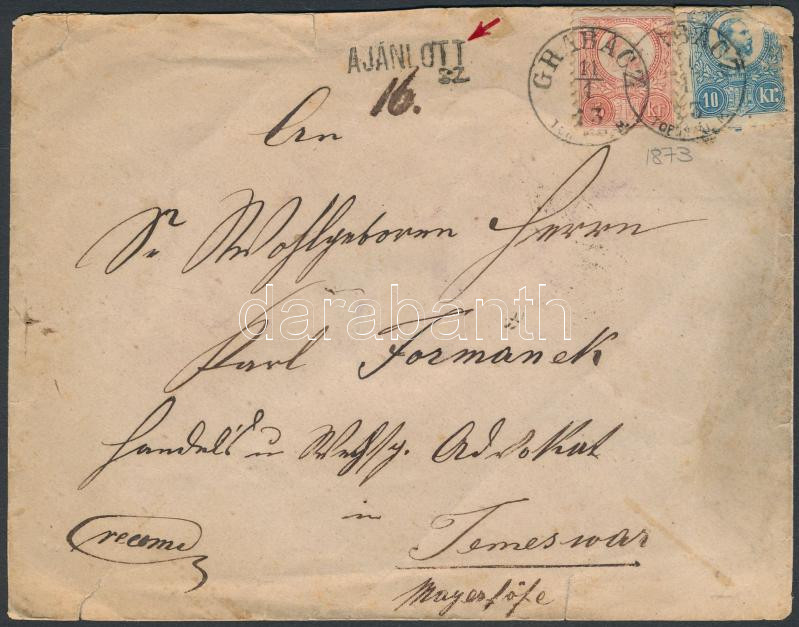 AJÁNLOTT
SZ
16.
GRABACZ
11
1
73
10 kr.
1873
An
Sr Wohlgeboren Herrn
Karl Formanek
Handels u Wechsp. Advokat
in
Temeswar
Mayerhöfe
recom
darabanth